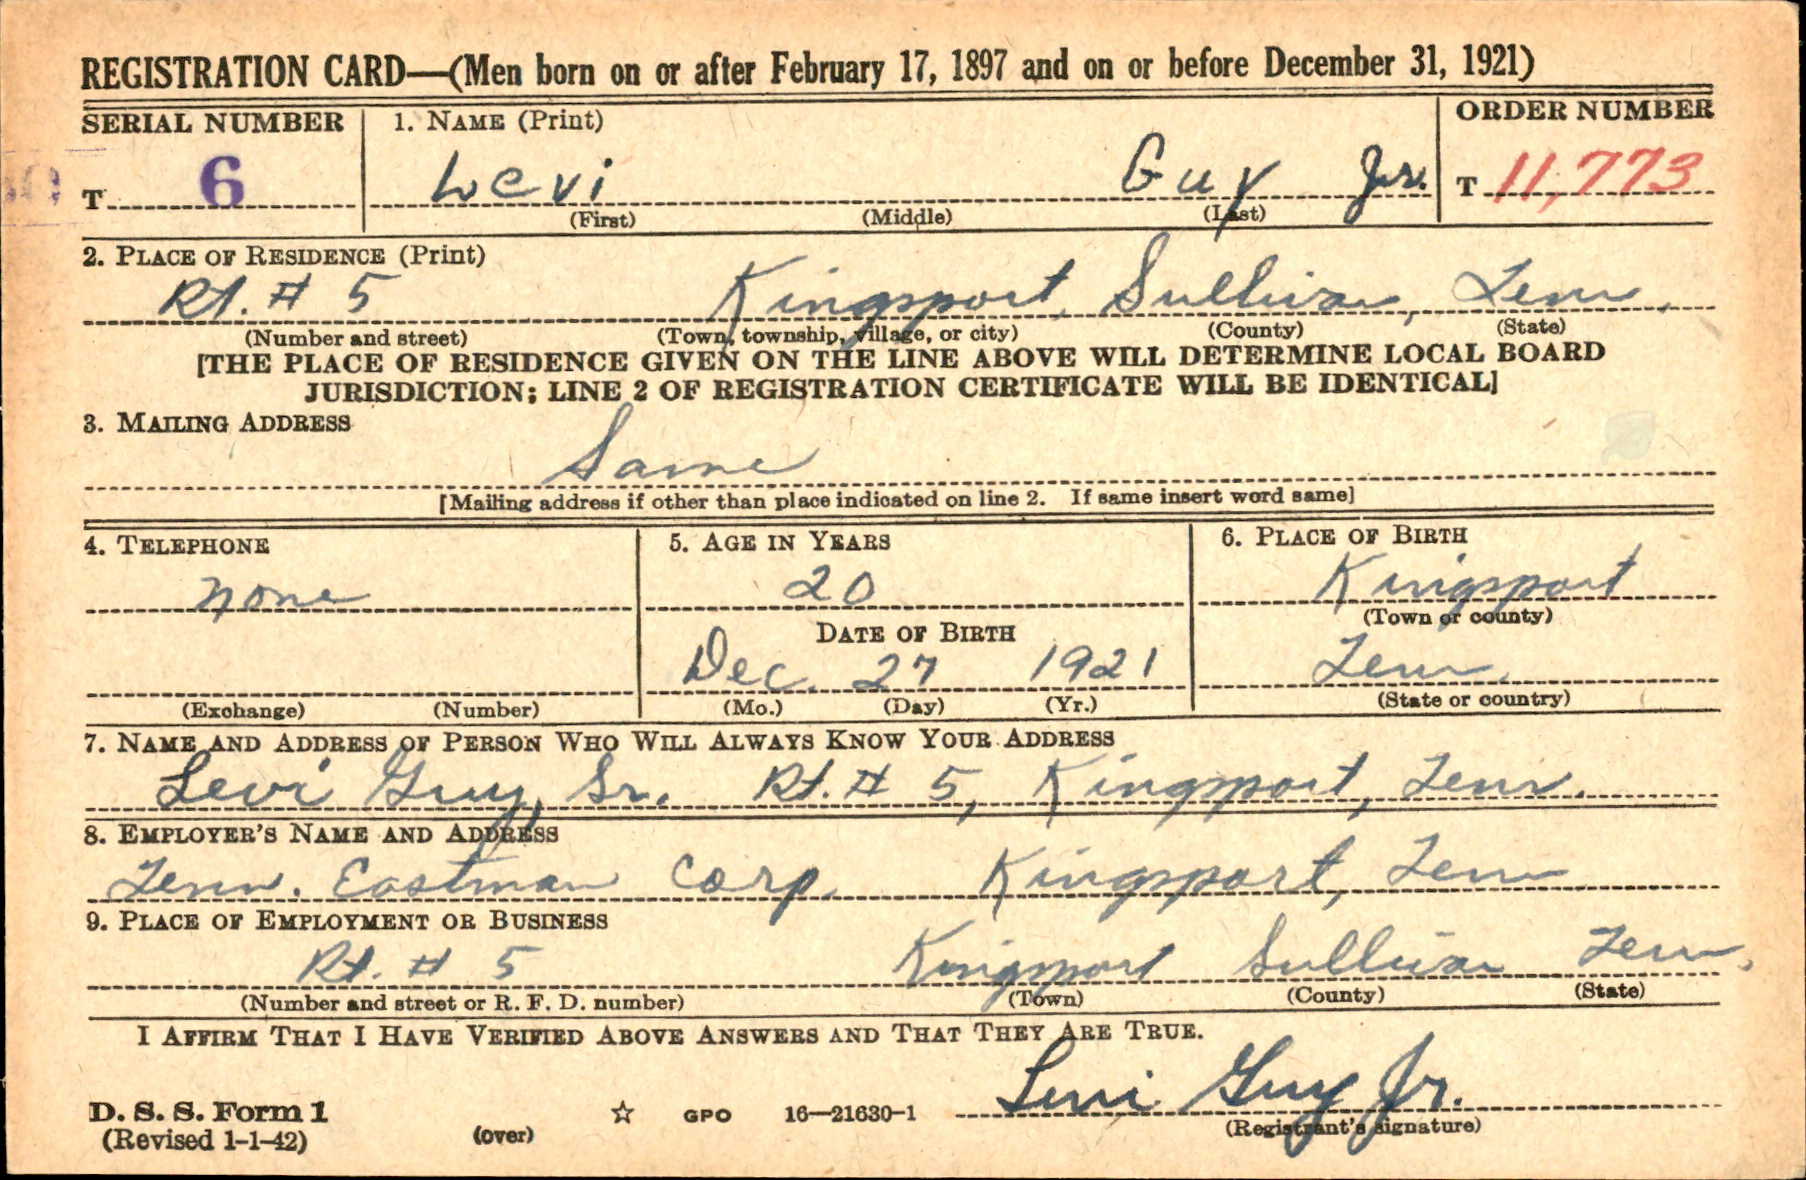 REGISTRATION CARD—(Men born on or after February 17, 1897 and on or before December 31, 1921)
SERIAL NUMBER 1. NAME (Print) ORDER NUMBER
T 6 Levi Guy Jr. T 11,773
(First) (Middle) (Last)
2. PLACE OF RESIDENCE (Print)
Rt. # 5 Kingsport, Sullivan, Tenn.
(Number and street) (Town, township, village, or city) (County) (State)
[THE PLACE OF RESIDENCE GIVEN ON THE LINE ABOVE WILL DETERMINE LOCAL BOARD
JURISDICTION; LINE 2 OF REGISTRATION CERTIFICATE WILL BE IDENTICAL]
3. MAILING ADDRESS
Same
[Mailing address if other than place indicated on line 2. If same insert word same]
4. TELEPHONE 5. AGE IN YEARS 6. PLACE OF BIRTH
None 20 Kingsport
(Town or county)
DATE OF BIRTH
Dec. 27 1921 Tenn.
(Exchange) (Number) (Mo.) (Day) (Yr.) (State or country)
7. NAME AND ADDRESS OF PERSON WHO WILL ALWAYS KNOW YOUR ADDRESS
Levi Guy, Sr. Rt. # 5, Kingsport, Tenn.
8. EMPLOYER'S NAME AND ADDRESS
Tenn. Eastman Corp. Kingsport, Tenn
9. PLACE OF EMPLOYMENT OR BUSINESS
Rt. # 5 Kingsport Sullivan Tenn.
(Number and street or R. F. D. number) (Town) (County) (State)
I AFFIRM THAT I HAVE VERIFIED ABOVE ANSWERS AND THAT THEY ARE TRUE.
Levi Guy Jr.
D. S. S. Form 1 ☆ GPO 16—21630-1
(Registrant's signature)
(Revised 1-1-42) (over)